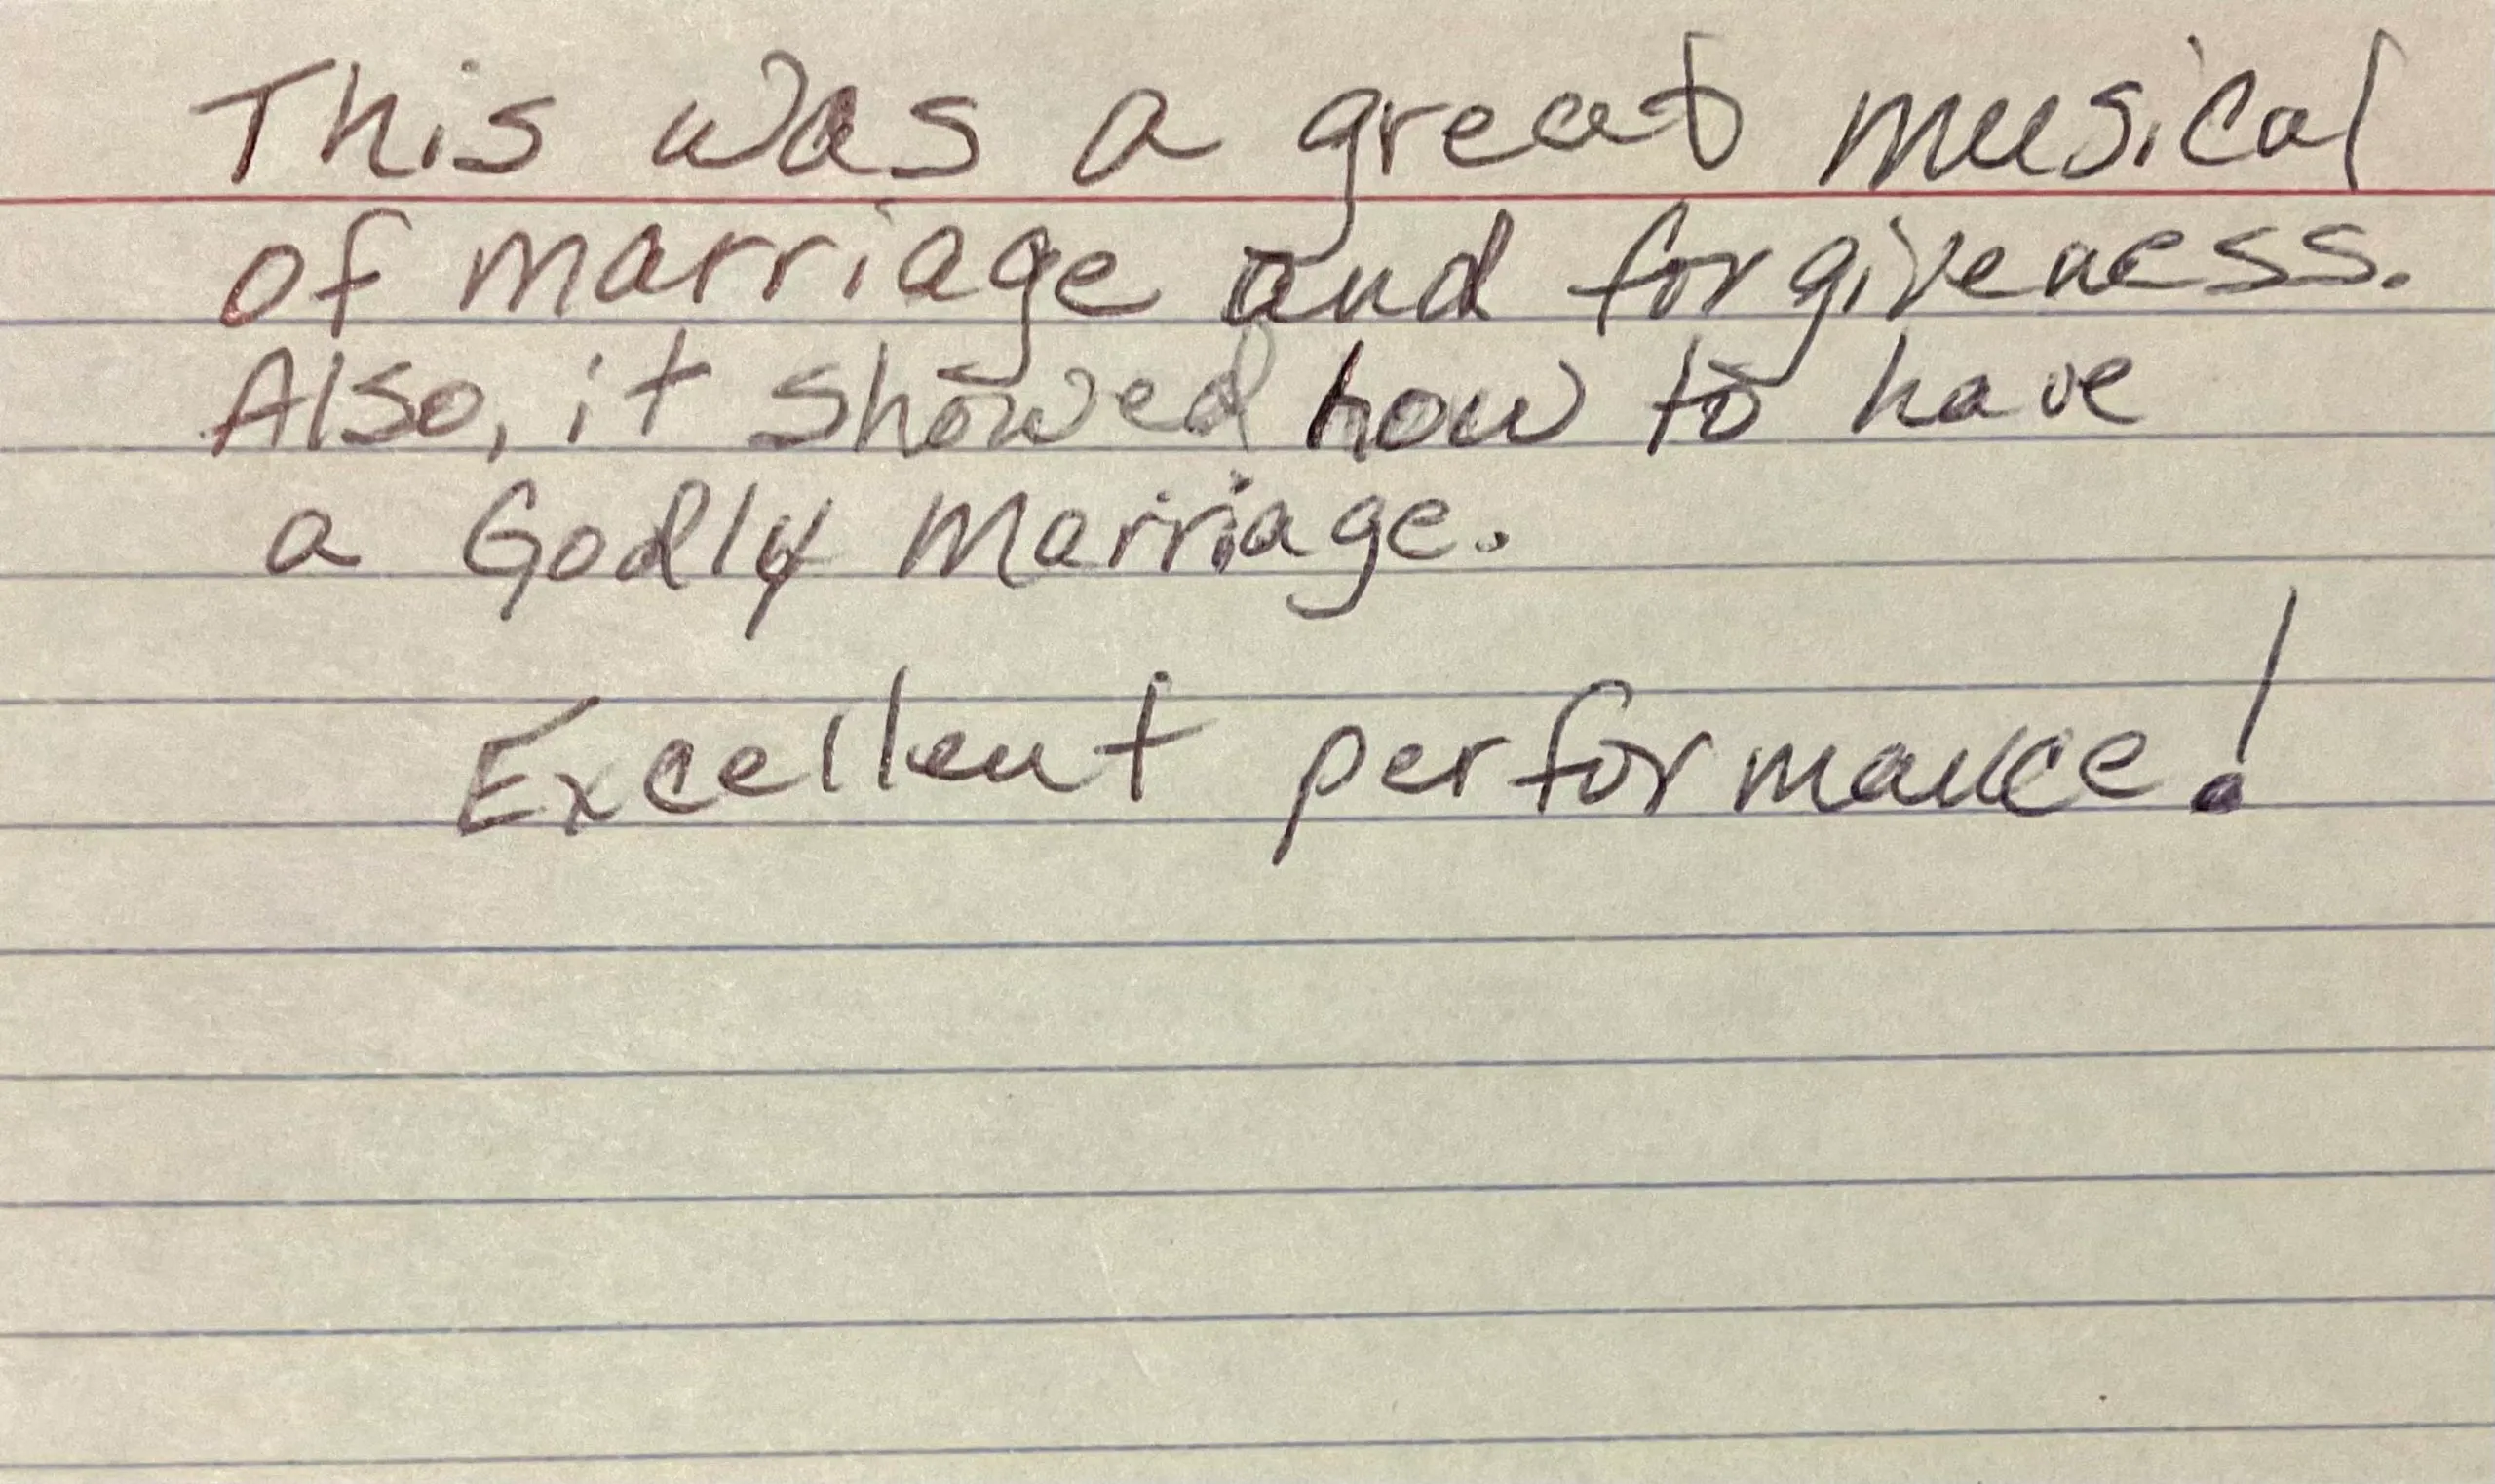 This was a great musical
of marriage and forgiveness.
Also, it showed how to have
a Godly marriage.
Excellent performance!